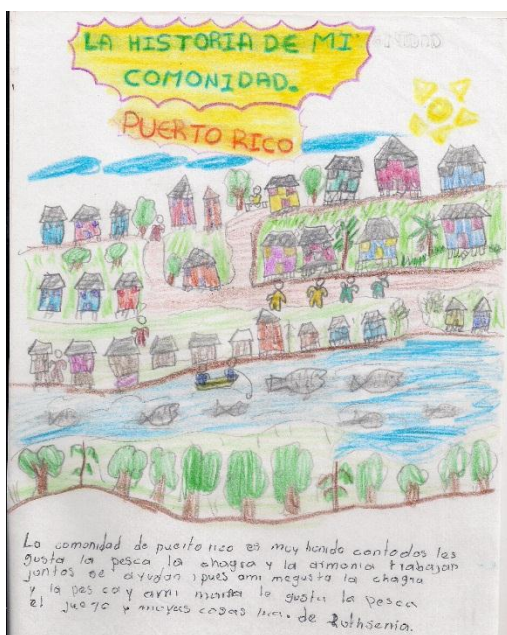 LA HISTORIA DE MI
COMONIDAD.
PUERTO RICO
La comonidad de puerto rico es muy honido con todos les
gusta la pesca la chagra y la aimonia trabajan
juntos se ayudan pues ami megusta la chagra
y la pesca y ami mama le gusta la pesca
el juego y muyas cosas mas. de Ruthsenia.